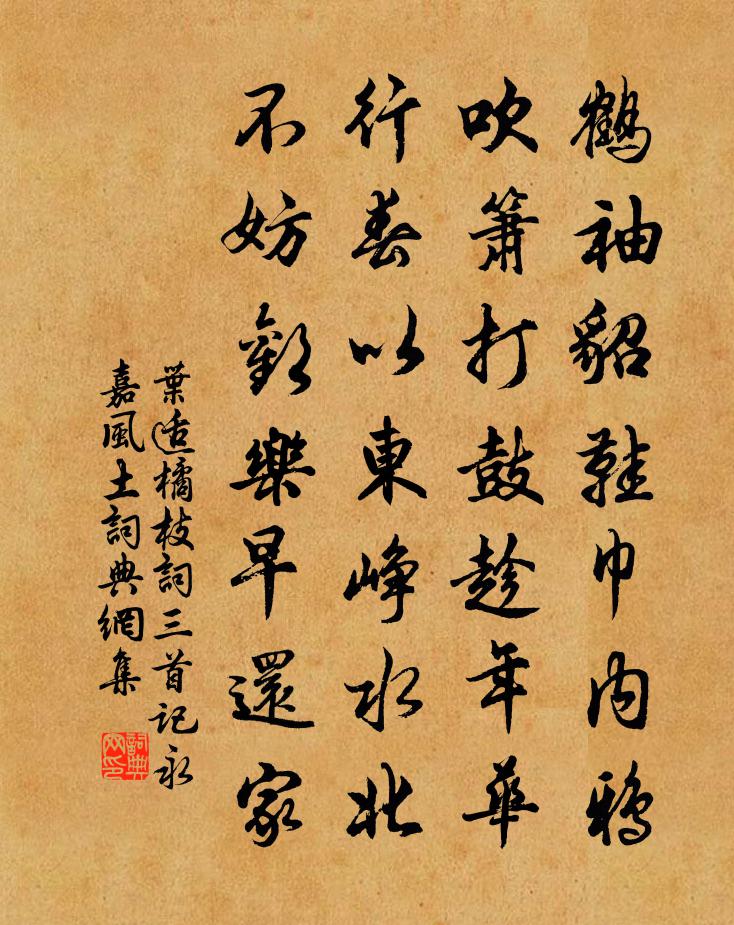 鶴袖貂鞋巾内鴉
吹簫打鼓趁年華
行春以東崢水北
不妨歡樂早還家
葉適橘枝詞三首記永
嘉風土詞典網集
詞典
网印